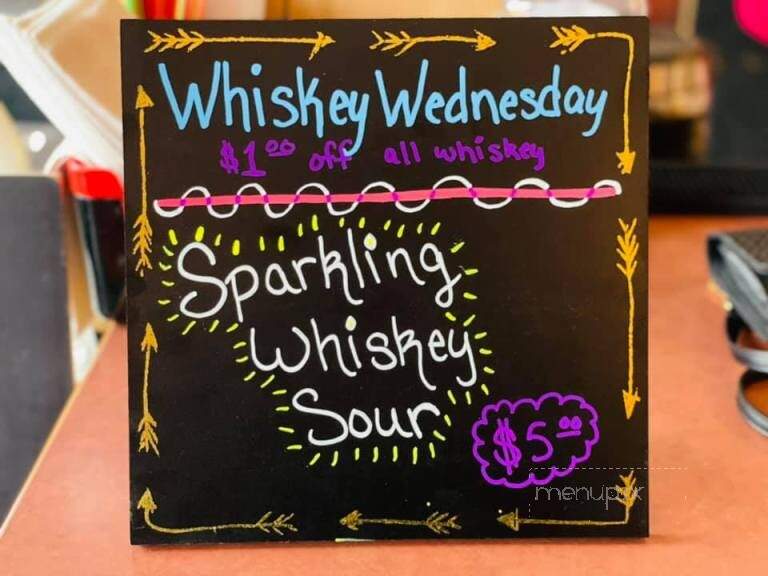 Whiskey Wednesday
$1.00 off all whiskey
Sparkling
Whiskey
Sour
$5.00
menupix